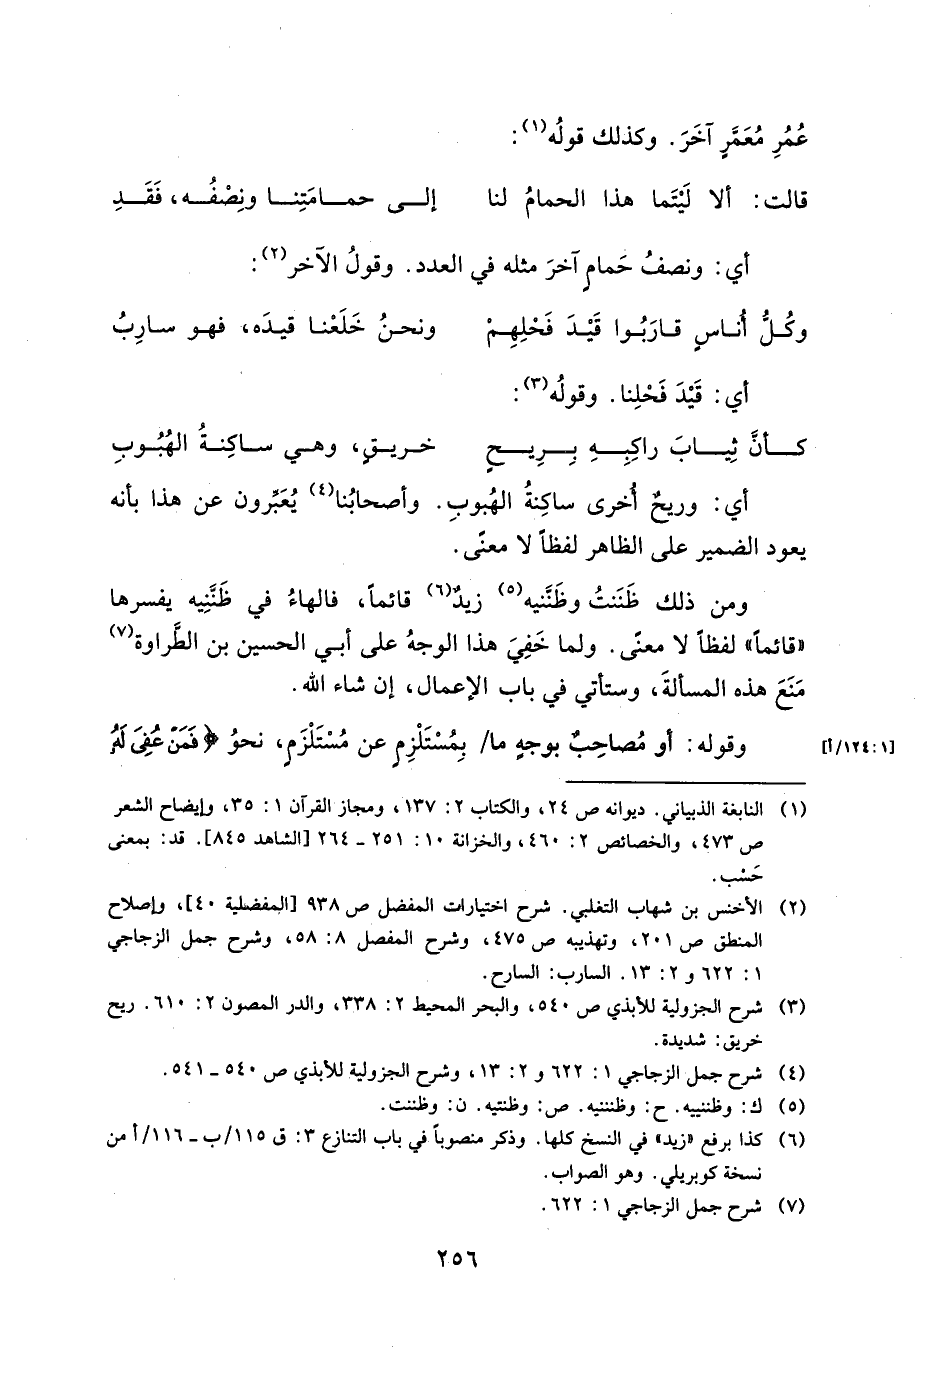 عُمُرِ مُعَمَّرٍ آخَرَ. وكذلك قولُه(١):
قالت: ألا لَيْتَما هذا الحمامُ لنا إلـى حمـامَتِنـا ونِصْفُـه، فَقَـدِ
أي: ونصفُ حَمامٍ آخرَ مثله في العدد. وقولُ الآخر(٢):
وكُلُّ أُنـاسٍ قـارَبُـوا قَيْـدَ فَحْلِهِـمْ ونحـنُ خَلَعْنـا قيـدَه، فهـو سـاربُ
أي: قَيْدَ فَحْلِنا. وقولُه(٣):
كـأنَّ ثِيـابَ راكِبِـهِ بِـرِيـحٍ خـريـقٍ، وهـي سـاكِنـةُ الهُبُـوبِ
أي: وريحٌ أُخرى ساكِنةُ الهُبوبِ. وأصحابُنا(٤) يُعَبِّرون عن هذا بأنه
يعود الضمير على الظاهر لفظاً لا معنًى.
ومن ذلك ظَنَنتُ وظَنَّنيه(٥) زيدٌ(٦) قائماً، فالهاءُ في ظَنَّنِيه يفسرها
«قائماً» لفظاً لا معنًى. ولما خَفِيَ هذا الوجهُ على أبي الحسين بن الطَّراوة(٧)
مَنَعَ هذه المسألةَ، وستأتي في باب الإعمال، إن شاء الله.
[١: ١٢٤/أ] وقوله: أو مُصاحِبٌ بوجهٍ ما/ بِمُسْتَلْزِمٍ عن مُسْتَلْزَمٍ، نحوُ ﴿فَمَنۡ عُفِيَ لَهُۥ
(١) النابغة الذبياني. ديوانه ص ٢٤، والكتاب ٢: ١٣٧، ومجاز القرآن ١: ٣٥، وإيضاح الشعر
ص ٤٧٣، والخصائص ٢: ٤٦٠، والخزانة ١٠: ٢٥١ ـ ٢٦٤ [الشاهد ٨٤٥]. قد: بمعنى
حَسْب.
(٢) الأخنس بن شهاب التغلبي. شرح اختيارات المفضل ص ٩٣٨ [المفضلية ٤٠]، وإصلاح
المنطق ص ٢٠١، وتهذيبه ص ٤٧٥، وشرح المفصل ٨: ٥٨، وشرح جمل الزجاجي
١: ٦٢٢ و ٢: ١٣. السارب: السارح.
(٣) شرح الجزولية للأبذي ص ٥٤٠، والبحر المحيط ٢: ٣٣٨، والدر المصون ٢: ٦١٠. ريح
خريق: شديدة.
(٤) شرح جمل الزجاجي ١: ٦٢٢ و ٢: ١٣، وشرح الجزولية للأبذي ص ٥٤٠ ـ ٥٤١.
(٥) ك: وظننييه. ح: وظنننيه. ص: وظنتيه. ن: وظننت.
(٦) كذا برفع «زيد» في النسخ كلها. وذكر منصوباً في باب التنازع ٣: ق ١١٥/ب ـ ١١٦/أ من
نسخة كوبريلي. وهو الصواب.
(٧) شرح جمل الزجاجي ١: ٦٢٢.
٢٥٦